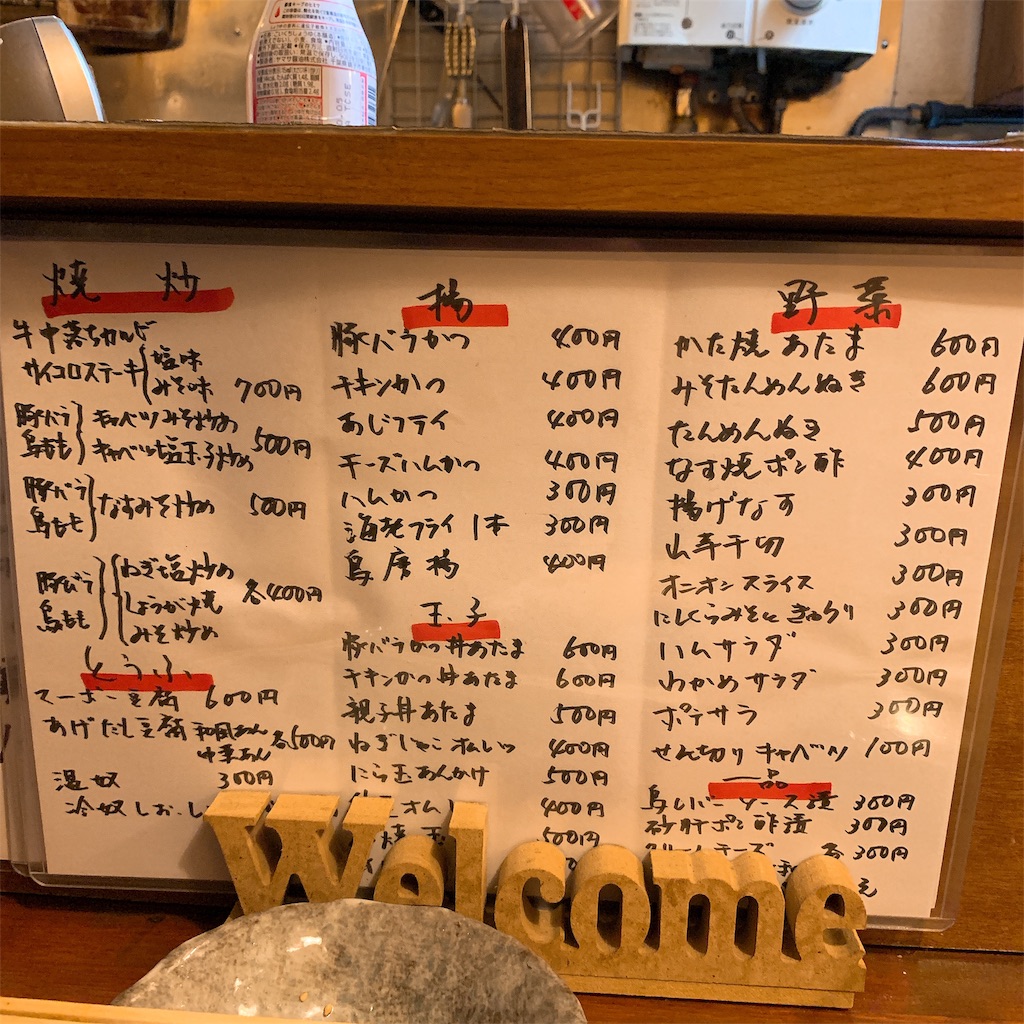 焼 炒
牛中落ちカルビ
サイコロステーキ 塩味
みそ味 700円
豚バラ キャベツみそ炒め
鳥もも キャベツ塩玉子炒め 500円
豚バラ
鳥もも なすみそ炒め 500円
豚バラ
鳥もも
ねぎ塩炒め
しょうが焼 各400円
みそ炒め
とうふ
マーボー豆腐 600円
あげだし豆腐 和風あん
中華あん 各500円
温奴 300円
冷奴
揚
豚バラかつ 400円
チキンかつ 400円
あじフライ 400円
チーズハムかつ 400円
ハムかつ 300円
海老フライ 1本 300円
鳥唐揚 400円
玉子
豚バラかつ丼あたま 600円
チキンかつ丼あたま 600円
親子丼あたま 500円
ねぎじゃこオムレツ 400円
にら玉あんかけ 500円
オム 400円
焼玉 500円
野菜
かた焼あたま 600円
みそたんめんぬき 600円
たんめんぬき 500円
なす焼ポン酢 400円
揚げなす 300円
山芋千切 300円
オニオンスライス 300円
にんにくみそときゅうり 300円
ハムサラダ 300円
わかめサラダ 300円
ポテサラ 300円
せん切りキャベツ 100円
一品
鳥レバーソース漬 300円
砂肝ポン酢漬 300円
クリームチーズ 各300円
Welcome